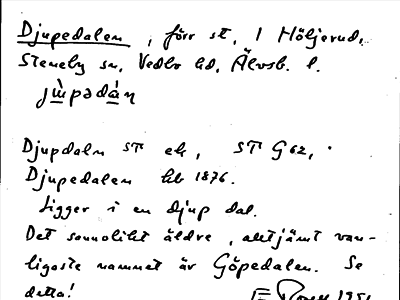 Djupedalen, förr st. i Höljerud,
Steneby sn, Vedbo hd, Älvsb. l.
jɯ̀padán
Djupdaln ST ek, ST G62,
Djupedalen hb 1876.
Ligger i en djup dal.
Det sannolikt äldre, alltjämt van-
ligaste namnet är Göpedalen. Se
detta!